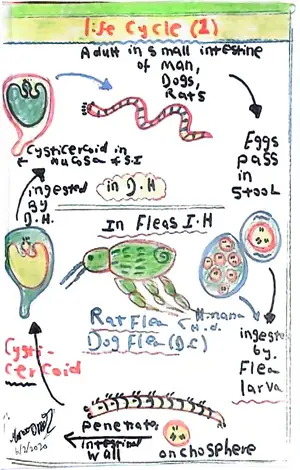 life cycle (1)
Adult in small intestine
of man,
Dogs,
Rats
Eggs
pass
in
stool
Cysticercoid in
mucosa of S.I
ingested
by
D.H.
in D.H
In Fleas I.H
Rat Flea
H.nana
H.d.
Dog Flea (D.C)
ingested
by
Flea
larva
Cysti-
cercoid
Penetrate
intestinal
wall
onchosphere
6/2/2020